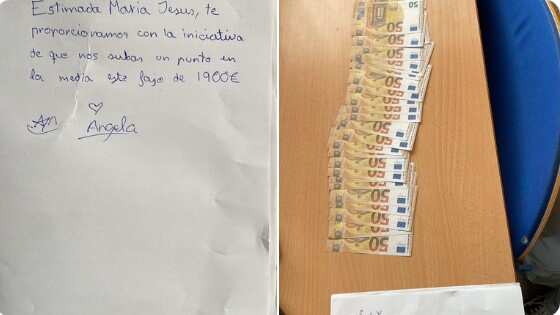 Estimada Maria Jesus, te
proporcionamos con la iniciativa
de que nos suban un punto en
la media este fajo de 1900€
Angela
50
50
50
50
50
50
50